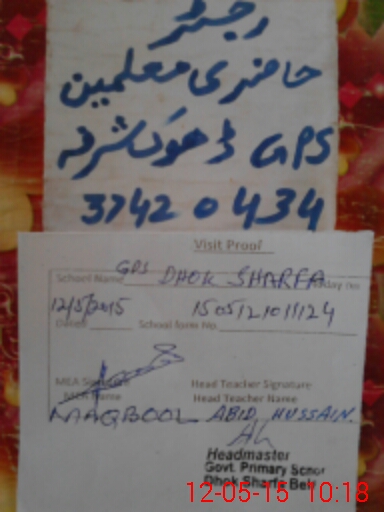 رجسٹر
حاضری معلمین
GPS ڈھوک شرفہ
37420434
Visit Proof
School Name GPS DHOK SHARFA
12/5/2015 150512101124
Dated School form No.
MEA Signature Head Teacher Signature
MEA Name Head Teacher Name
MAQBOOL ABID HUSSAIN.
Headmaster
Govt. Primary School
Dhok Sharfa
12-05-15 10:18